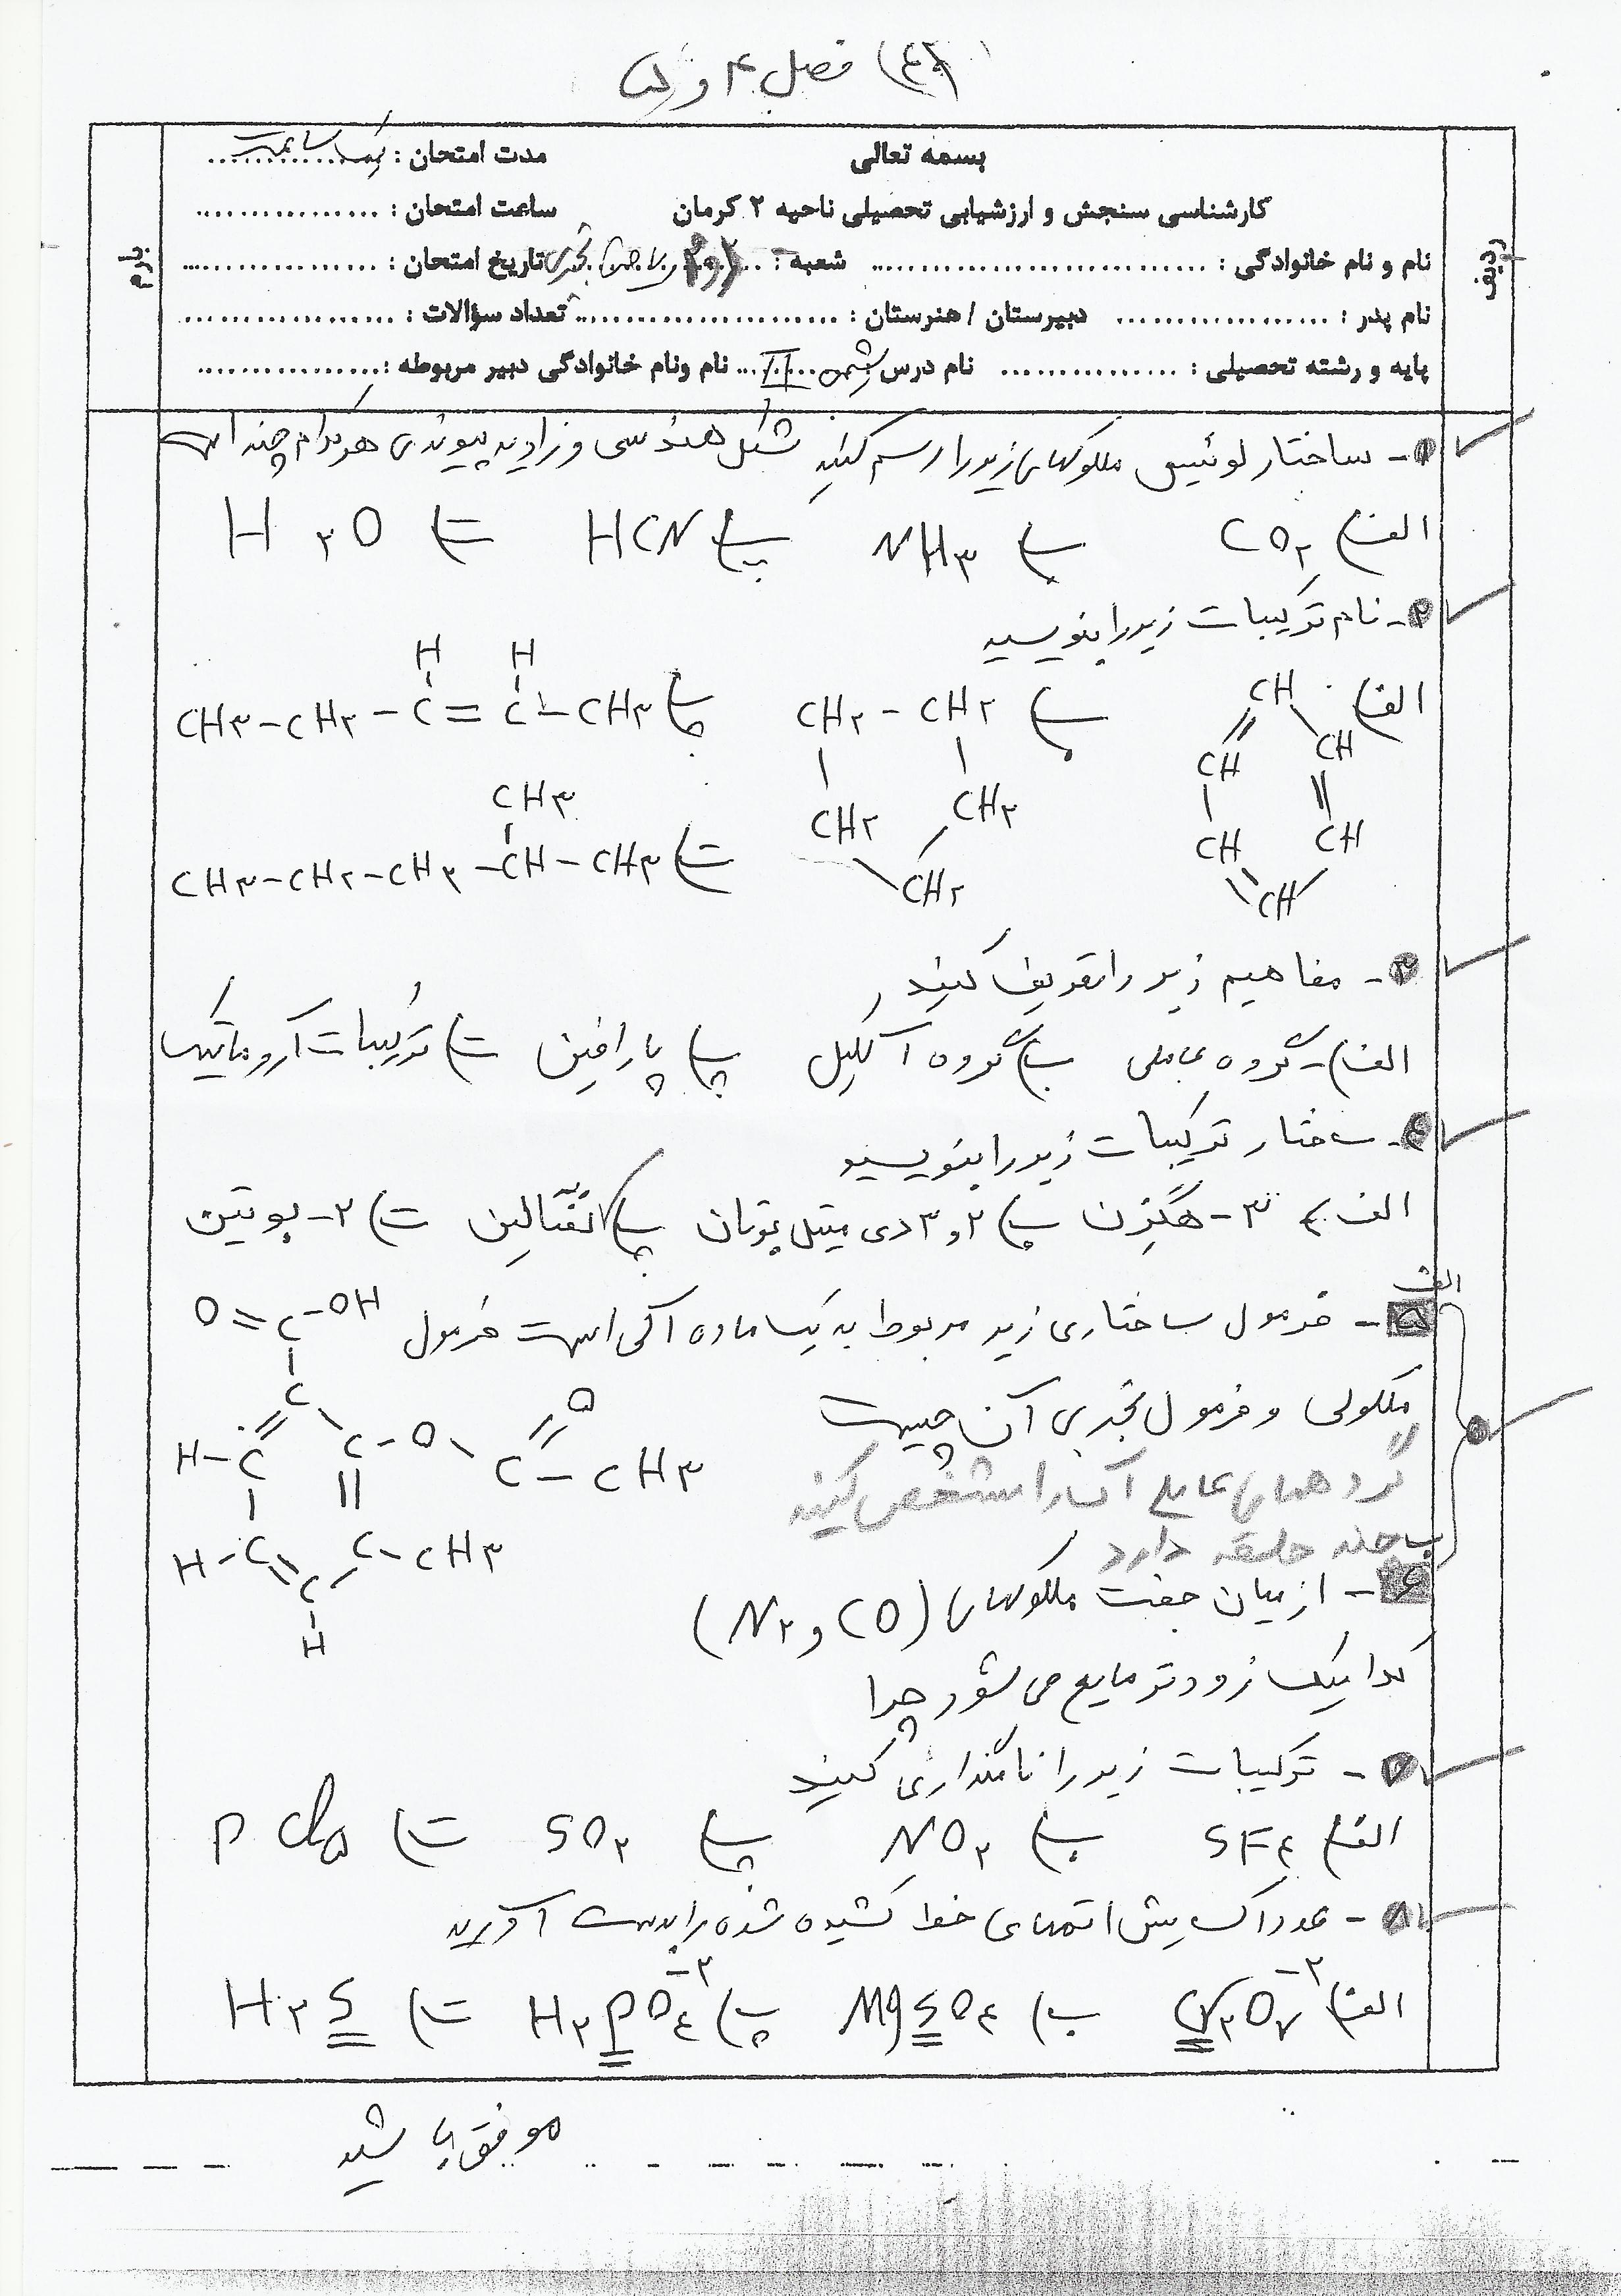 فصل ۴ و ۵
بسمه تعالی
مدت امتحان : یک ساعت
کارشناسی سنجش و ارزشیابی تحصیلی ناحیه ۲ کرمان
ساعت امتحان : ................
ردیف
بارم
نام و نام خانوادگی : ................................ شعبه : دوم ریاضی تجربی تاریخ امتحان : ...................
نام پدر : .................... دبیرستان / هنرستان : ......................... تعداد سؤالات : ....................
پایه و رشته تحصیلی : ................. نام درس شیمی II نام ونام خانوادگی دبیر مربوطه : .................
۱- ساختار لوئیس ملکولهای زیر را رسم کنید شکل هندسی و زاویه پیوندی هر کدام چند است
الف) CO۲ ب) NH۳ پ) HCN ت) H۲O
۲- نام ترکیبات زیر را بنویسید
الف) CH CH CH CH CH CH
ب) CH۲ - CH۲ CH۲ CH۲ CH۲
پ) CH۳-CH۲-C=C-CH۳ H H
ت) CH۳-CH۲-CH۲-CH-CH۳ CH۳
۳- مفاهیم زیر را تعریف کنید
الف)- گروه عاملی ب) گروه آلکیل پ) پارافین ت) ترکیبات آروماتیک
۴- ساختار ترکیبات زیر را بنویسید
الف) ۳- هگزن ب) ۲و۳ دی متیل بوتان پ) نفتالین ت) ۲- بوتین
الف
۵- فرمول ساختاری زیر مربوط به یک ماده آلی است فرمول
ملکولی و فرمول تجربی آن چیست
گروههای عاملی آن را مشخص کنید
O=C-OH
C
H-C C-O-C-CH۳ O
H-C C-CH۳
C
H
ب چند حلقه دارد
۶- از میان جفت ملکولهای (CO و N۲)
کدامیک زودتر مایع می شود چرا
۷- ترکیبات زیر را نامگذاری کنید
الف) SF۴ ب) NO۲ پ) SO۲ ت) PCl۵
۸- عدد اکسایش اتمهای خط کشیده شده را بدست آورید
الف) Cr۲O۷ -۲ ب) MgSO۴ پ) H۲PO۴ -۲ ت) H۲S
موفق باشید